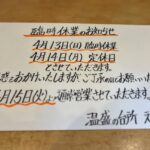 臨時休業のお知らせ
4月13日(日)臨時休業
4月14日(月)定休日
とさせていただきます。
惑をおかけいたしますが、ご了承のほどお願いいた
月15日(火)より通常営業させていただきます。
温盛の台所